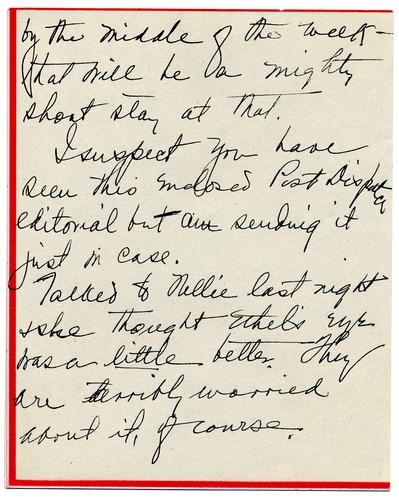 by the middle of the week -
that will be a mighty
short stay at that.
I suspect you have
seen this enclosed Post Dispatch
editorial but am sending it
just in case.
Talked to Nellie last night
& she thought Ethel's eye
was a little better. They
are terribly worried
about it, of course.